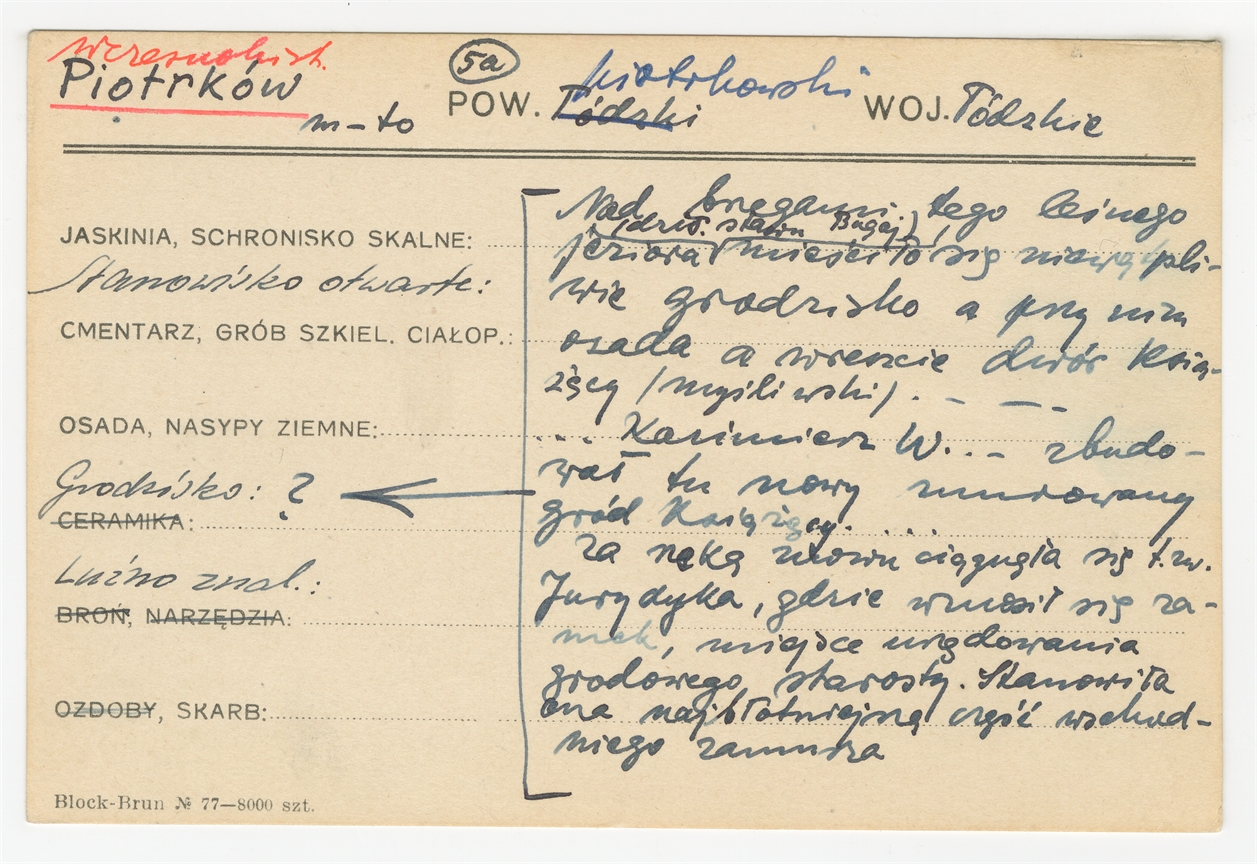 wczesnohist.
Piotrków
m-to
5a
POW. Łódzki piotrkowski
WOJ. Łódzkie
JASKINIA, SCHRONISKO SKALNE:
Stanowisko otwarte:
CMENTARZ, GRÓB SZKIEL. CIAŁOP.:
OSADA, NASYPY ZIEMNE:
Grodzisko: ?
CERAMIKA:
Luźno znal.:
BROŃ, NARZĘDZIA:
OZDOBY, SKARB:
Block-Brun № 77—8000 szt.
Nad brzegami tego leśnego
(dziś. stawu Bugaj)
jeziora mieściło się niewątpli-
wie grodzisko a przy nim
osada a wreszcie dwór Książ-
żęcy (myśliwski). - - -
... Kazimierz W... - zbudo-
wał tu nowy murowany
gród Książęcy. . . . .
Za rzeką znowu ciągnęła się t.zw.
Jurydyka, gdzie wznosił się za-
mek, miejsce urzędowania
grodowego starosty. Stanowiła
ona najbłotniejszą część wschod-
niego zamurza